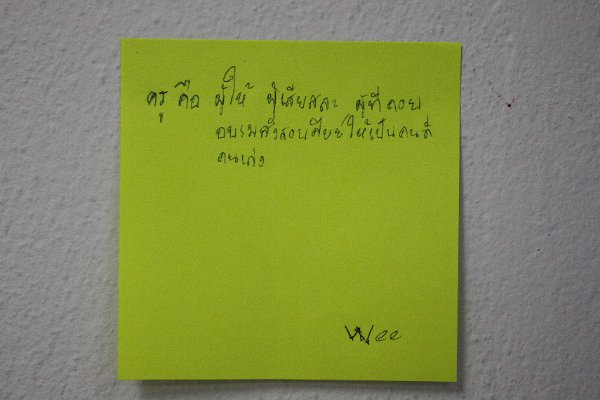 ครู คือ ผู้ให้ ผู้เสียสละ ผู้ที่คอย
อบรมสั่งสอนศิษย์ให้เป็นคนดี
คนเก่ง
Wee